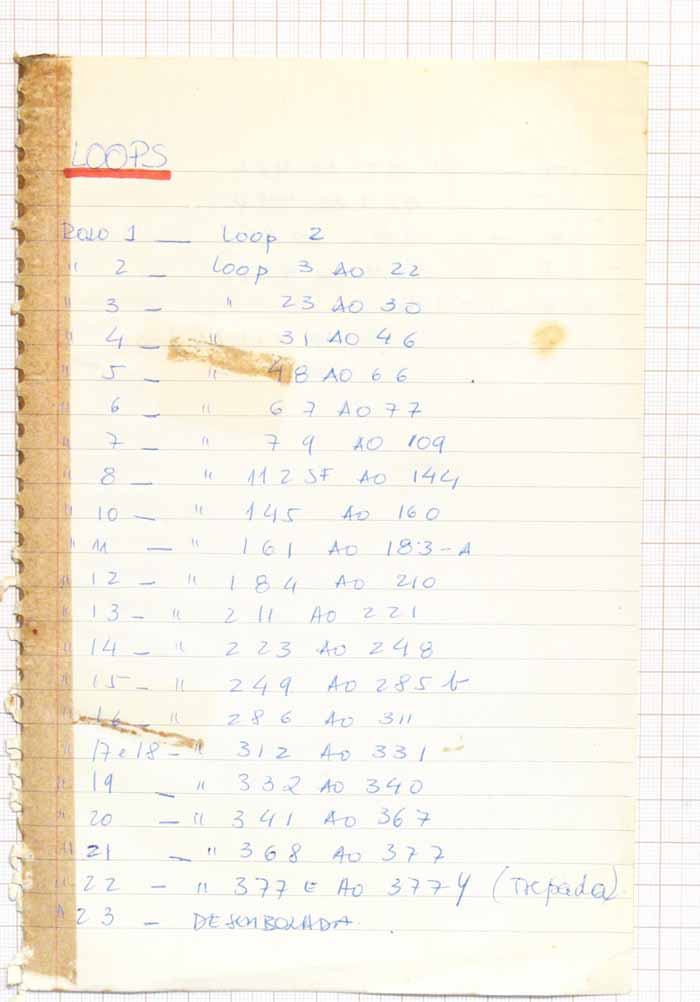 LOOPS
ROLO 1 — Loop 2
" 2 — Loop 3 AO 22
" 3 — " 23 AO 30
" 4 — " 31 AO 46
" 5 — " 48 AO 66
" 6 — " 67 AO 77
" 7 — " 79 AO 109
" 8 — " 112 SF AO 144
" 10 — " 145 AO 160
" 11 — " 161 AO 183-A
" 12 — " 184 AO 210
" 13 — " 211 AO 221
" 14 — " 223 AO 248
" 15 — " 249 AO 285 b
" 16 — " 286 AO 311
" 17 e 18 — " 312 AO 331
" 19 — " 332 AO 340
" 20 — " 341 AO 367
" 21 — " 368 AO 377
" 22 — " 377 E AO 377 Y (Trepada)
" 23 — DESEMBOLADA